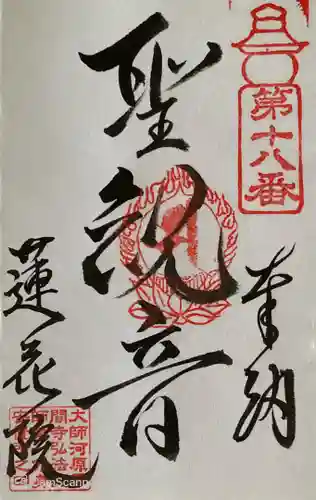 第十八番
奉納
聖観音
蓮花院
大師河原
間寺弘法
CamScanner